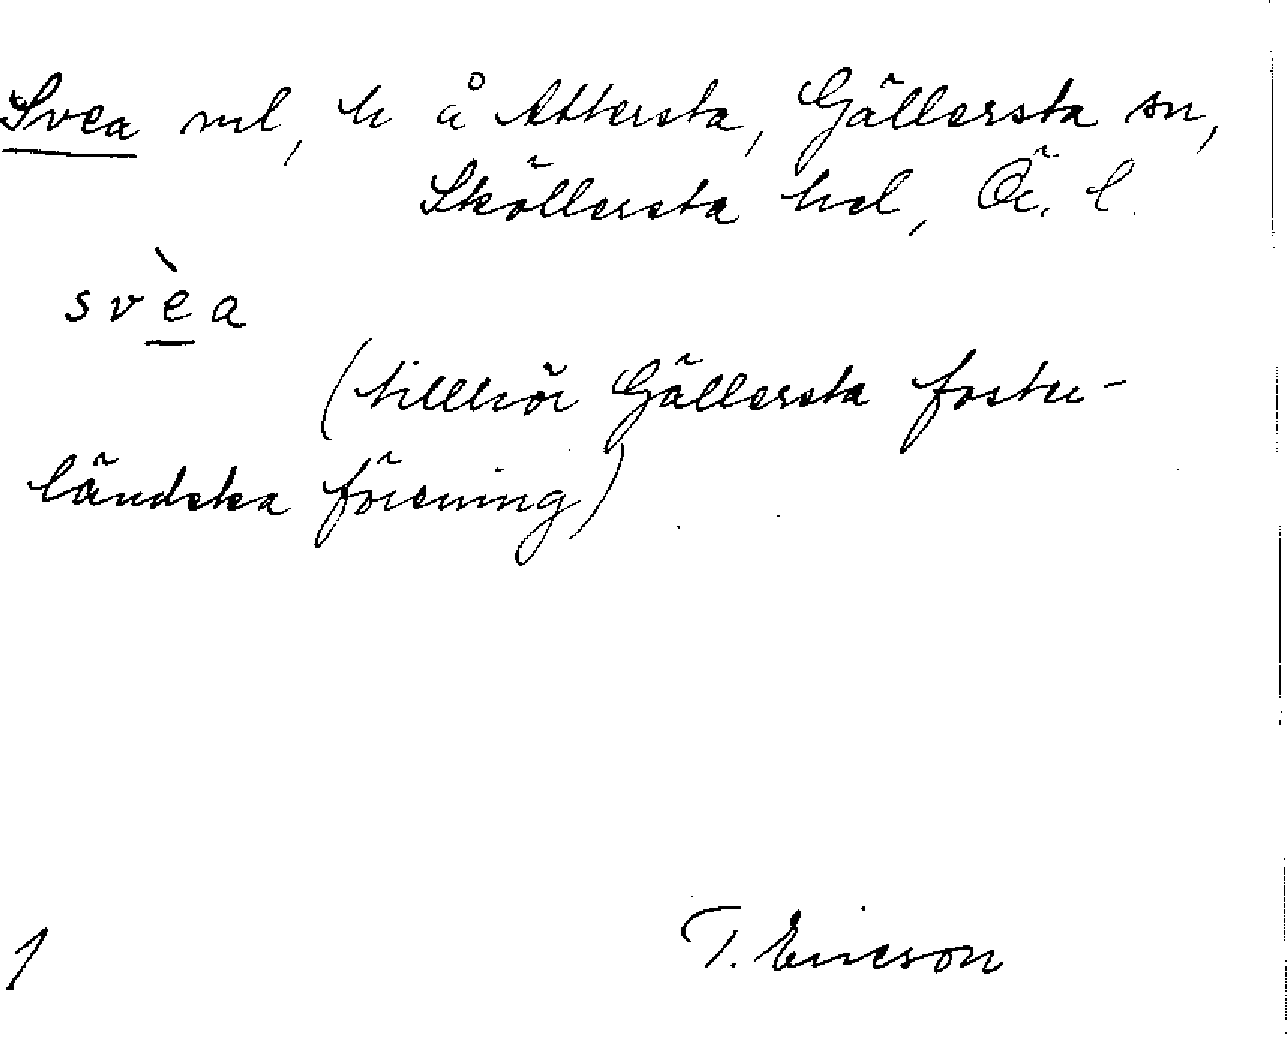 Svea ml, h å Attersta, Gällersta sn,
Sköllersta hd, Ö. l.
svèa
(tillhör Gällersta foster-
ländska förening)
1
T. Ericson